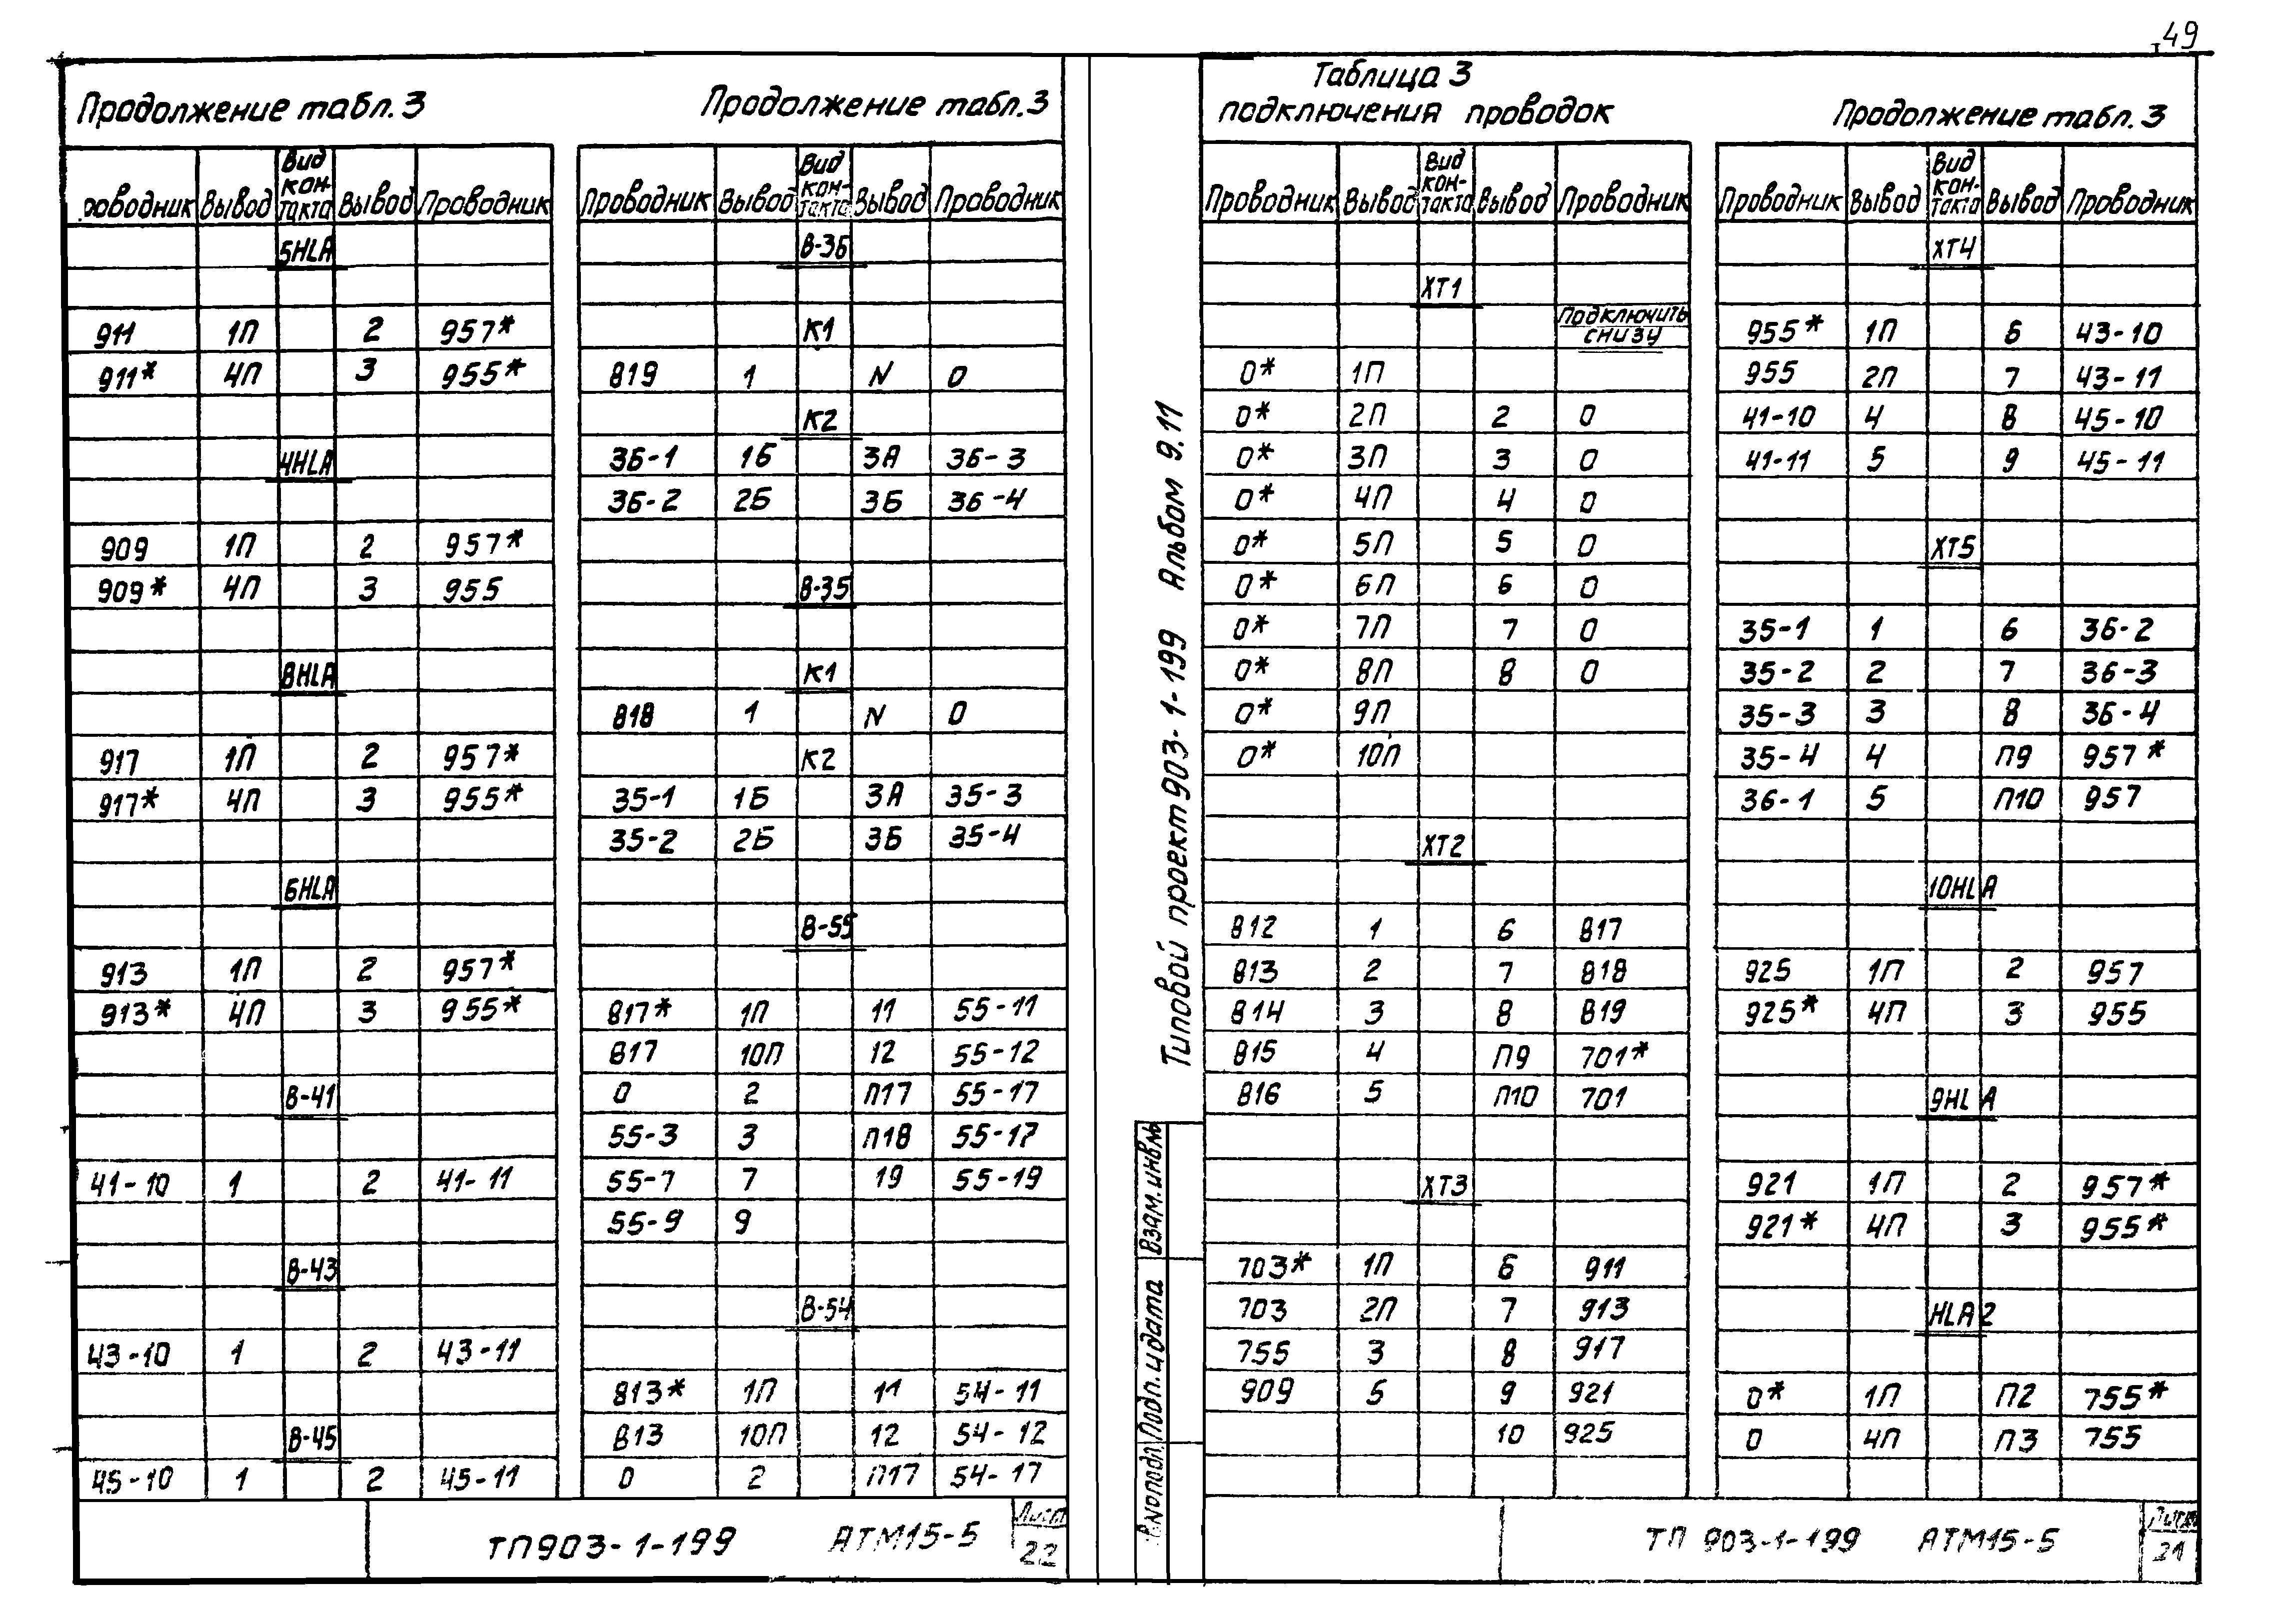 49
Продолжение табл. 3
оводник Вывод Вид контакта Вывод Проводник
5HLA
911 1П 2 957*
911* 4П 3 955*
4HLA
909 1П 2 957*
909* 4П 3 955
8HLA
917 1П 2 957*
917* 4П 3 955*
6HLA
913 1П 2 957*
913* 4П 3 955*
В-41
41-10 1 2 41-11
В-43
43-10 1 2 43-11
В-45
45-10 1 2 45-11
Продолжение табл. 3
Проводник Вывод Вид кон-такта Вывод Проводник
В-36
К1
819 1 N 0
К2
36-1 1Б 3А 36-3
36-2 2Б 3Б 36-4
В-35
К1
818 1 N 0
К2
35-1 1Б 3А 35-3
35-2 2Б 3Б 35-4
В-55
817* 1П 11 55-11
817 10П 12 55-12
0 2 П17 55-17
55-3 3 П18 55-17
55-7 7 19 55-19
55-9 9
В-54
813* 1П 11 54-11
813 10П 12 54-12
0 2 П17 54-17
ТП903-1-199 АТМ15-5
Лист
22
Типовой проект 903-1-199 Альбом 9.11
Взам.инв№
Подп. и дата
Таблица 3
подключения проводок
Проводник Вывод Вид кон-такта Вывод Проводник
XT1
Подключить
снизу
0* 1П
0* 2П 2 0
0* 3П 3 0
0* 4П 4 0
0* 5П 5 0
0* 6П 6 0
0* 7П 7 0
0* 8П 8 0
0* 9П
0* 10П
XT2
812 1 6 817
813 2 7 818
814 3 8 819
815 4 П9 701*
816 5 П10 701
XT3
703* 1П 6 911
703 2П 7 913
755 3 8 917
909 5 9 921
10 925
Продолжение табл. 3
Проводник Вывод Вид кон-такта Вывод Проводник
XT4
955* 1П 6 43-10
955 2П 7 43-11
41-10 4 8 45-10
41-11 5 9 45-11
XT5
35-1 1 6 36-2
35-2 2 7 36-3
35-3 3 8 36-4
35-4 4 П9 957*
36-1 5 П10 957
10HLA
925 1П 2 957
925* 4П 3 955
9HLA
921 1П 2 957*
921* 4П 3 955*
HLA2
0* 1П П2 755*
0 4П П3 755
ТП 903-1-199 АТМ15-5
Лист
21